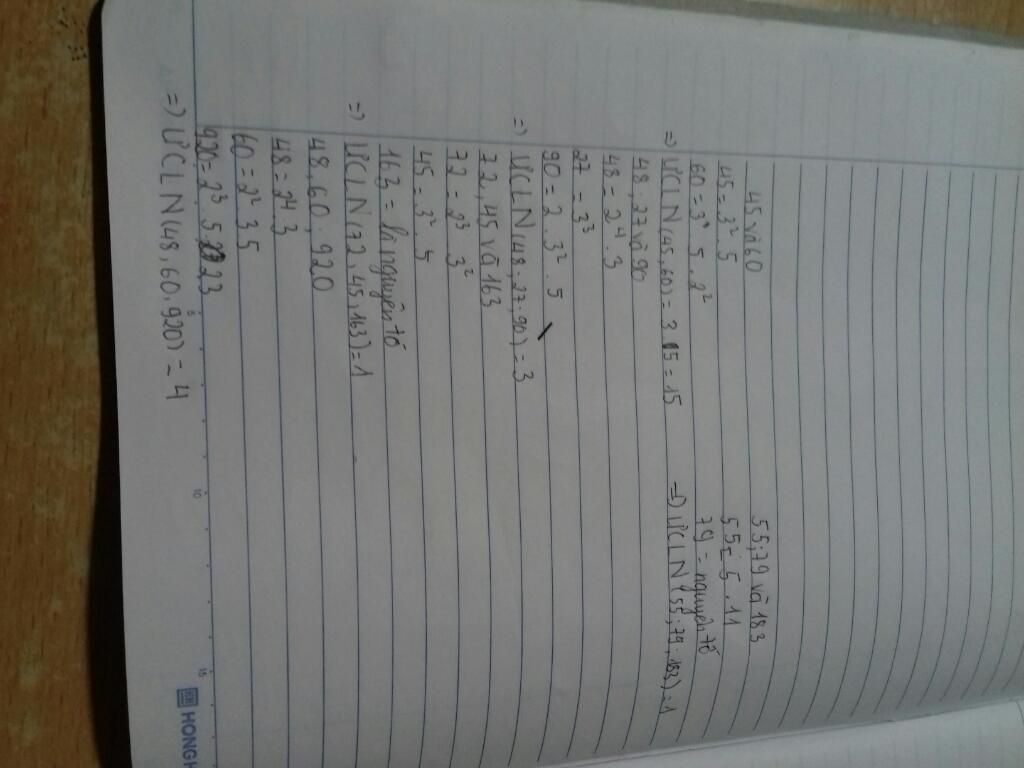 45 và 60
45 = 3² . 5
60 = 3 . 5 . 2²
=) ƯCLN (45, 60) = 3 . 5 = 15
48, 27 và 90
48 = 2⁴ . 3
27 = 3³
90 = 2 . 3² . 5
=) ƯCLN (48, 27, 90) = 3
72, 45 và 163
72 = 2³ . 3²
45 = 3² . 5
163 = là nguyên tố
=) ƯCLN (72, 45, 163) = 1
48, 60, 920
48 = 2⁴ . 3
60 = 2² 3 5
920 = 2³ . 5 . 23
=) ƯCLN (48, 60, 920) = 4
55, 79 và 183
55 = 5 . 11
79 = nguyên tố
=) ƯCLN (55, 79, 183) = 1
5
10
15
HONGH